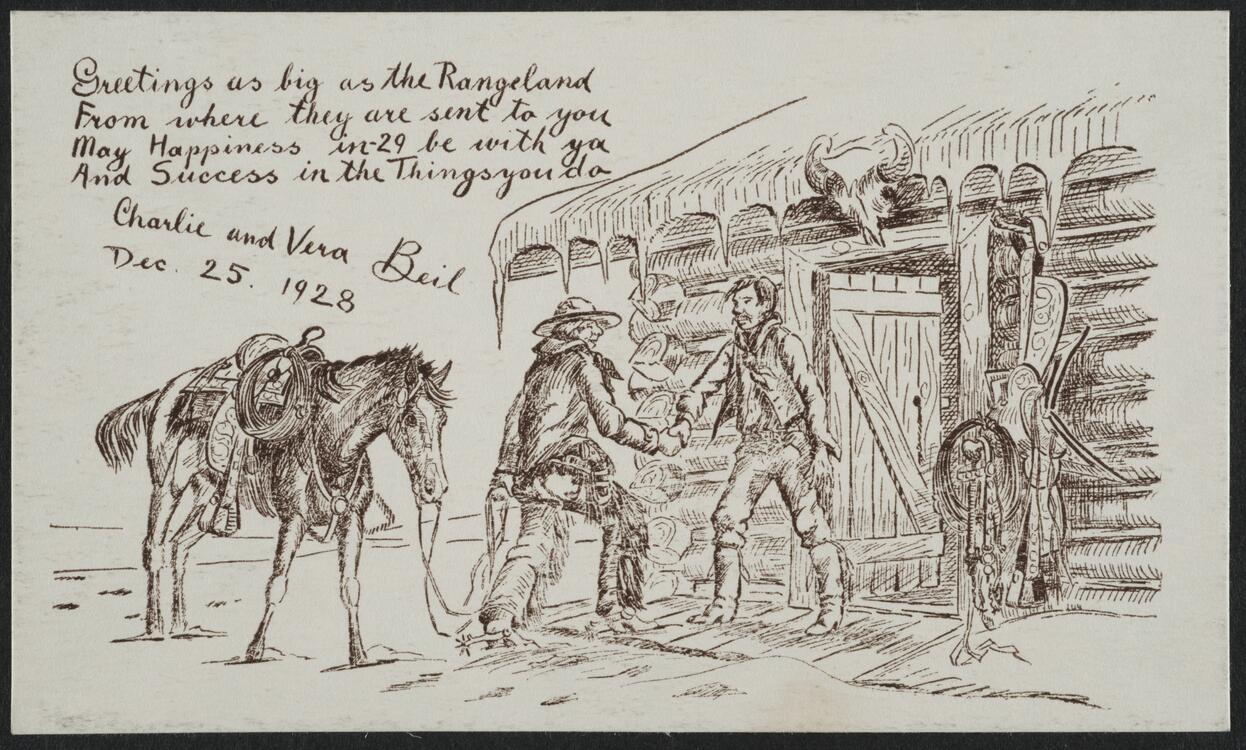 Greetings as big as the Rangeland
From where they are sent to you
May Happiness in-29 be with ya
And Success in the Things you do
Charlie and Vera Beil
Dec. 25. 1928